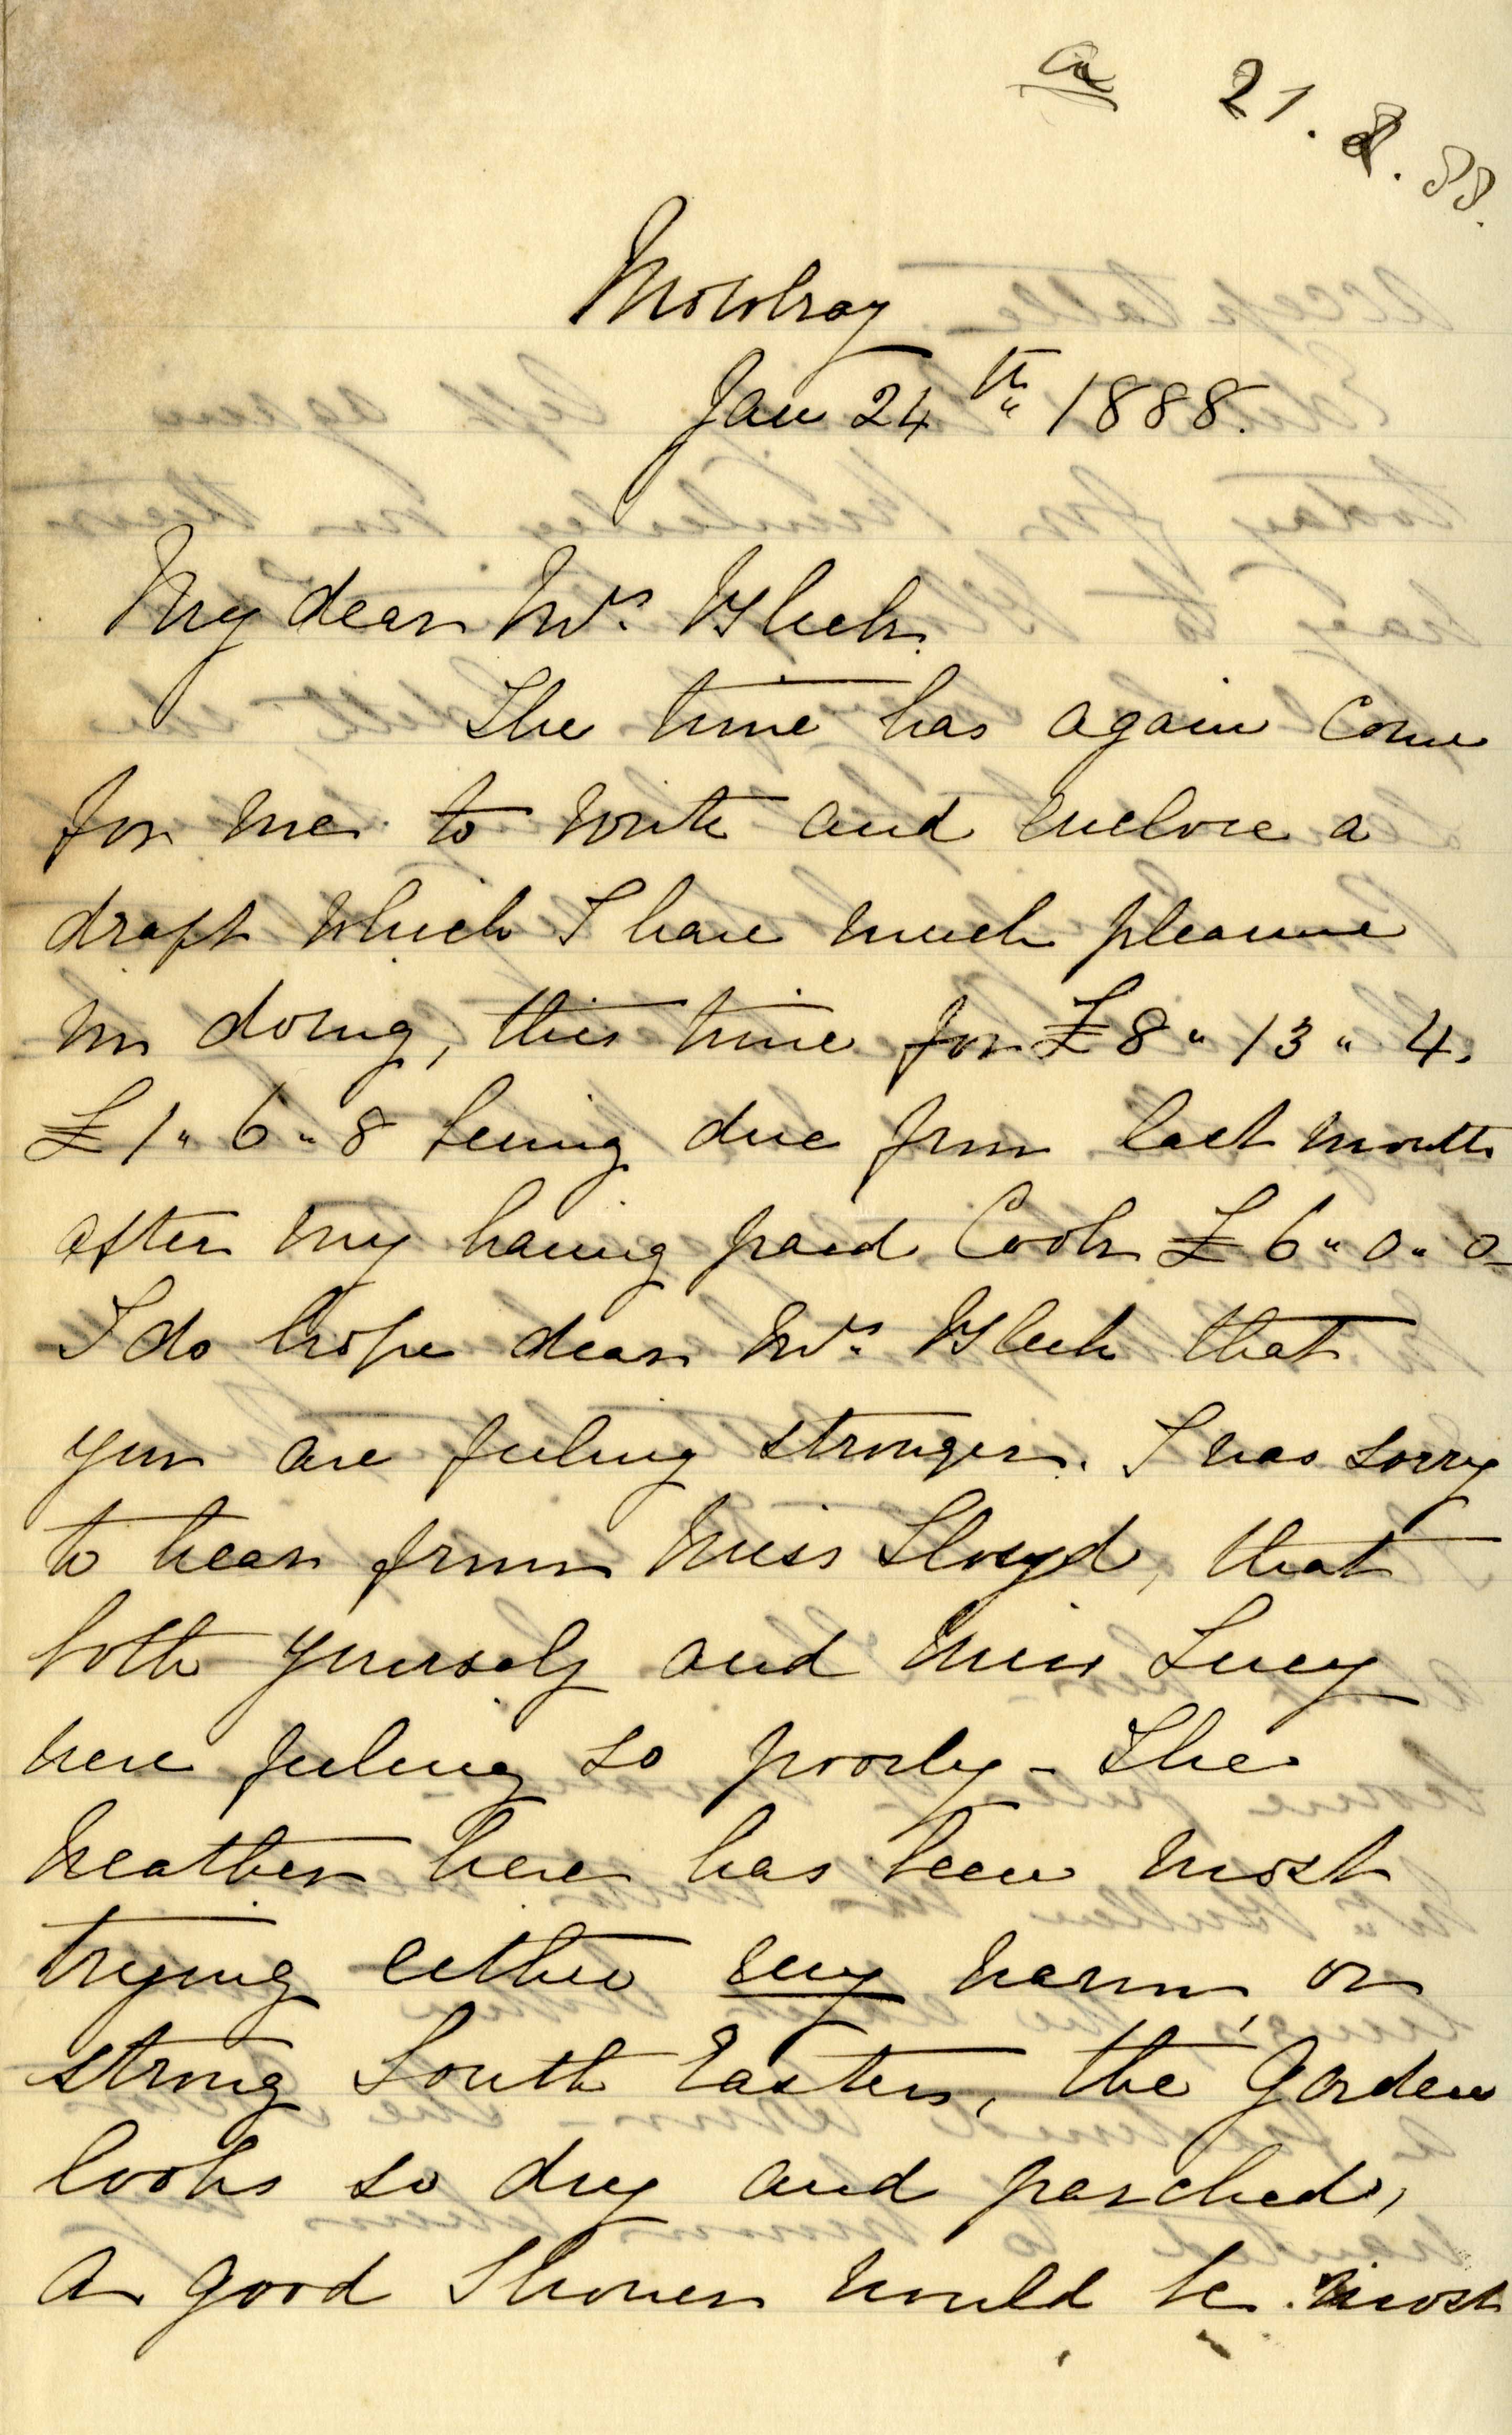 a 21. 2. 88.
Mowbray
Jan 24th 1888.
My dear Mrs. Bleek
The time has again come
for me to write and enclose a
draft which I have much pleasure
in doing, this time for £8 " 13 " 4.
£1 " 6 " 8 being due from last month
after my having paid Cook £6 " 0 " 0
I do hope dear Mrs. Bleek that
you are feeling stronger. I was sorry
to hear from Miss Lloyd, that
both yourself and Miss Lucy
were feeling so poorly - The
weather here has been most
trying either very warm, or
strong South Easters, the Garden
looks so dry and parched,
a good Shower would be most